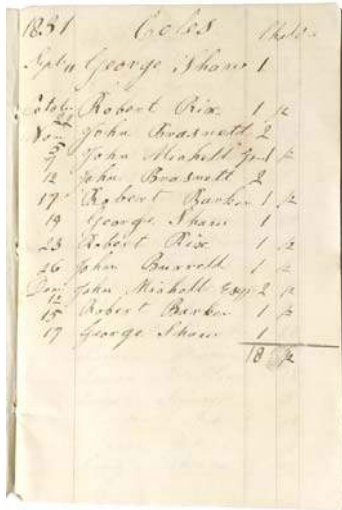 1831 Coles Chald
Sept 11 George Shaw 1
Octobr 21 Robert Rix 1 ½
Nov 5 John Brasnett 2
7 John Mishell 1 ½
12 John Brasnett 2
17 Robert Barker 1 ½
19 George Shaw 1
23 Robert Rix 1 ½
26 John Burrell 1 ½
Decr 12 John Mishell Esqr 2 ½
15 Robert Barker 1 ½
17 George Shaw 1
18 ½